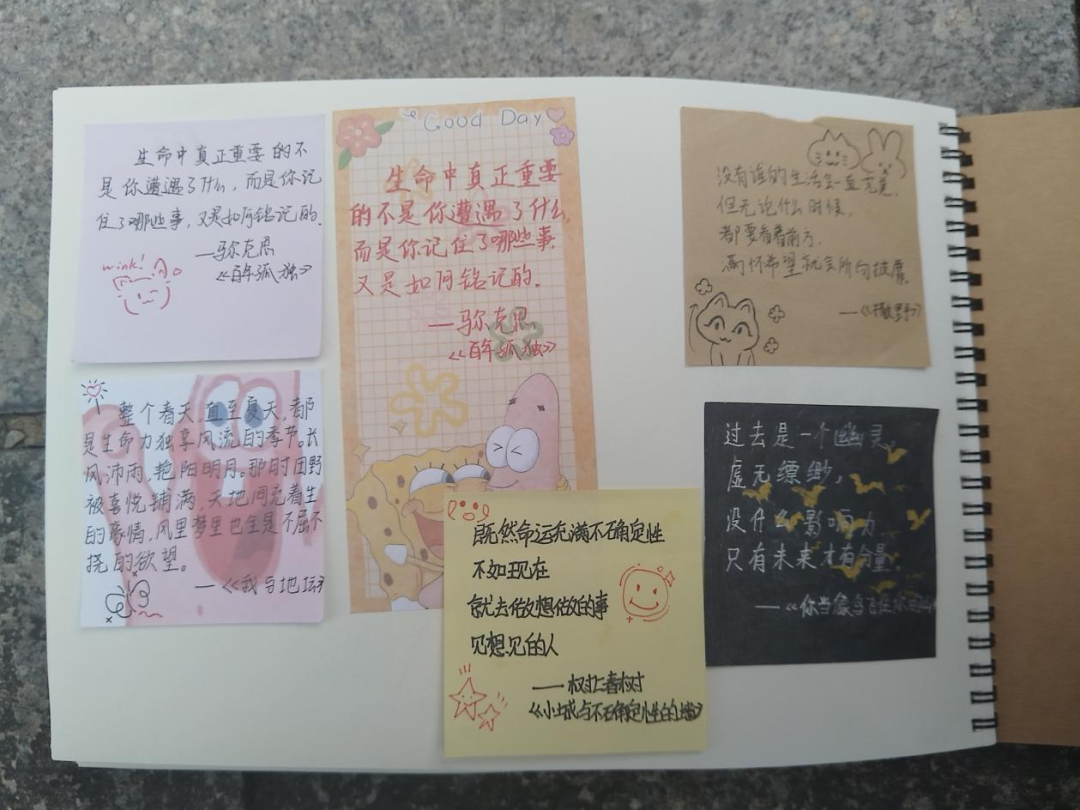 生命中真正重要的不
是你遭遇了什么，而是你记
住了哪些事，又是如何铭记的.
—马尔克思
《百年孤独》
wink!
Good Day
生命中真正重要
的不是你遭遇了什么,
而是你记住了哪些事
又是如何铭记的.
—马尔克思
《百年孤独》
没有谁的生活会一直完美.
但无论什么时候,
都要看着前方.
满怀希望就会所向披靡.
—《撒野》
整个春天,直至夏天,都
是生命力独享风流的季节。长
风沛雨，艳阳明月。那时田野
被喜悦铺满，天地间充着生
的豪情，风里梦里也全是不屈不
挠的欲望。
—《我与地坛》
过去是一个幽灵,
虚无缥缈,
没什么影响力.
只有未来才有分量.
—《你当像鸟飞往你的山》
既然命运充满不确定性
不如现在
就去做想做的事
见想见的人
——村上春树
《小城与不确定性的墙》